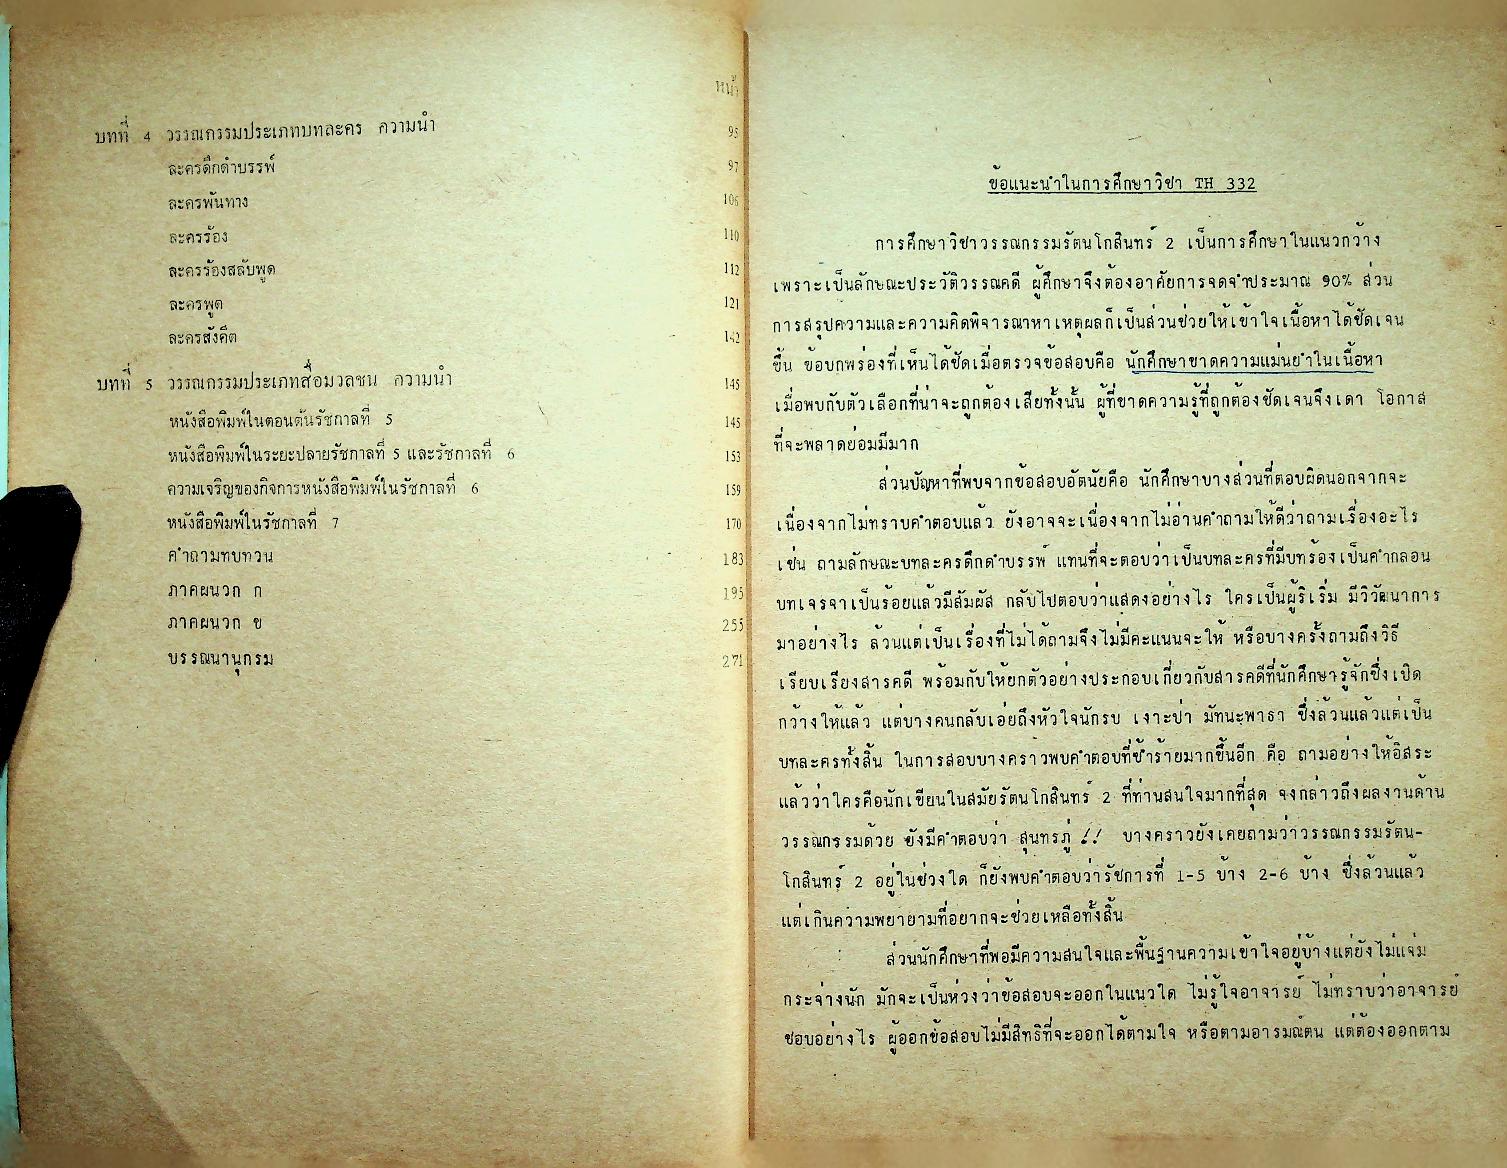 หน้า
บทที่ 4 วรรณกรรมประเภทบทละคร ความนำ 95
ละครดึกดำบรรพ์ 97
ละครพันทาง 106
ละครร้อง 110
ละครร้องสลับพูด 112
ละครพูด 121
ละครสังคีต 142
บทที่ 5 วรรณกรรมประเภทสื่อมวลชน ความนำ 145
หนังสือพิมพ์ในตอนต้นรัชกาลที่ 5 145
หนังสือพิมพ์ในระยะปลายรัชกาลที่ 5 และรัชกาลที่ 6 153
ความเจริญของกิจการหนังสือพิมพ์ในรัชกาลที่ 6 159
หนังสือพิมพ์ในรัชกาลที่ 7 170
คำถามทบทวน 183
ภาคผนวก ก 195
ภาคผนวก ข 255
บรรณานุกรม 271
ข้อแนะนำในการศึกษาวิชา TH 332
การศึกษาวิชาวรรณกรรมรัตนโกสินทร์ 2 เป็นการศึกษาในแนวกว้าง
เพราะเป็นลักษณะประวัติวรรณคดี ผู้ศึกษาจึงต้องอาศัยการจดจำประมาณ 90% ส่วน
การสรุปความและความคิดพิจารณาหาเหตุผลก็เป็นส่วนช่วยให้เข้าใจเนื้อหาได้ชัดเจน
ขึ้น ข้อบกพร่องที่เห็นได้ชัดเมื่อตรวจข้อสอบคือ นักศึกษาขาดความแม่นยำในเนื้อหา
เมื่อพบกับตัวเลือกที่น่าจะถูกต้องเสียทั้งนั้น ผู้ที่ขาดความรู้ที่ถูกต้องชัดเจนจึงเดา โอกาส
ที่จะพลาดย่อมมีมาก
ส่วนปัญหาที่พบจากข้อสอบอัตนัยคือ นักศึกษาบางส่วนที่ตอบผิดนอกจากจะ
เนื่องจากไม่ทราบคำตอบแล้ว ยังอาจจะเนื่องจากไม่อ่านคำถามให้ดีว่าถามเรื่องอะไร
เช่น ถามลักษณะบทละครดึกดำบรรพ์ แทนที่จะตอบว่าเป็นบทละครที่มีบทร้องเป็นคำกลอน
บทเจรจาเป็นร้อยแล้วมีสัมผัส กลับไปตอบว่าแสดงอย่างไร ใครเป็นผู้ริเริ่ม มีวิวัฒนาการ
มาอย่างไร ล้วนแต่เป็นเรื่องที่ไม่ได้ถามจึงไม่มีคะแนนจะให้ หรือบางครั้งถามถึงวิธี
เรียบเรียงสารคดี พร้อมกับให้ยกตัวอย่างประกอบเกี่ยวกับสารคดีที่นักศึกษารู้จักซึ่งเปิด
กว้างให้แล้ว แต่บางคนกลับเอ่ยถึงหัวใจนักรบ เงาะป่า มัทนะพาธา ซึ่งล้วนแล้วแต่เป็น
บทละครทั้งสิ้น ในการสอบบางคราวพบคำตอบที่ซ้ำร้ายมากขึ้นอีก คือ ถามอย่างให้อิสระ
แล้วว่าใครคือนักเขียนในสมัยรัตนโกสินทร์ 2 ที่ท่านสนใจมากที่สุด จงกล่าวถึงผลงานด้าน
วรรณกรรมด้วย ยังมีคำตอบว่า สุนทรภู่ !! บางคราวยังเคยถามว่าวรรณกรรมรัตน-
โกสินทร์ 2 อยู่ในช่วงใด ก็ยังพบคำตอบว่ารัชการที่ 1-5 บ้าง 2-6 บ้าง ซึ่งล้วนแล้ว
แต่เกินความพยายามที่อยากจะช่วยเหลือทั้งสิ้น
ส่วนนักศึกษาที่พอมีความสนใจและพื้นฐานความเข้าใจอยู่บ้างแต่ยังไม่แจ่ม
กระจ่างนัก มักจะเป็นห่วงว่าข้อสอบจะออกในแนวใด ไม่รู้ใจอาจารย์ ไม่ทราบว่าอาจารย์
ชอบอย่างไร ผู้ออกข้อสอบไม่มีสิทธิที่จะออกได้ตามใจ หรือตามอารมณ์ตน แต่ต้องออกตาม